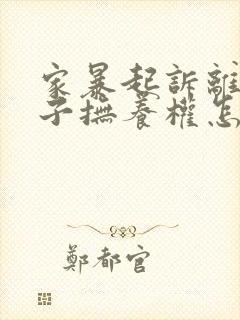 家暴起訴離
子撫養權怎
鄭都官